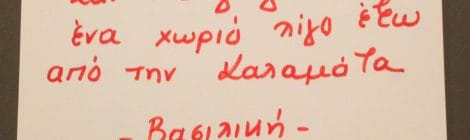 ένα χωριό λίγο έξω
από την Καλαμάτα
- Βασιλική -